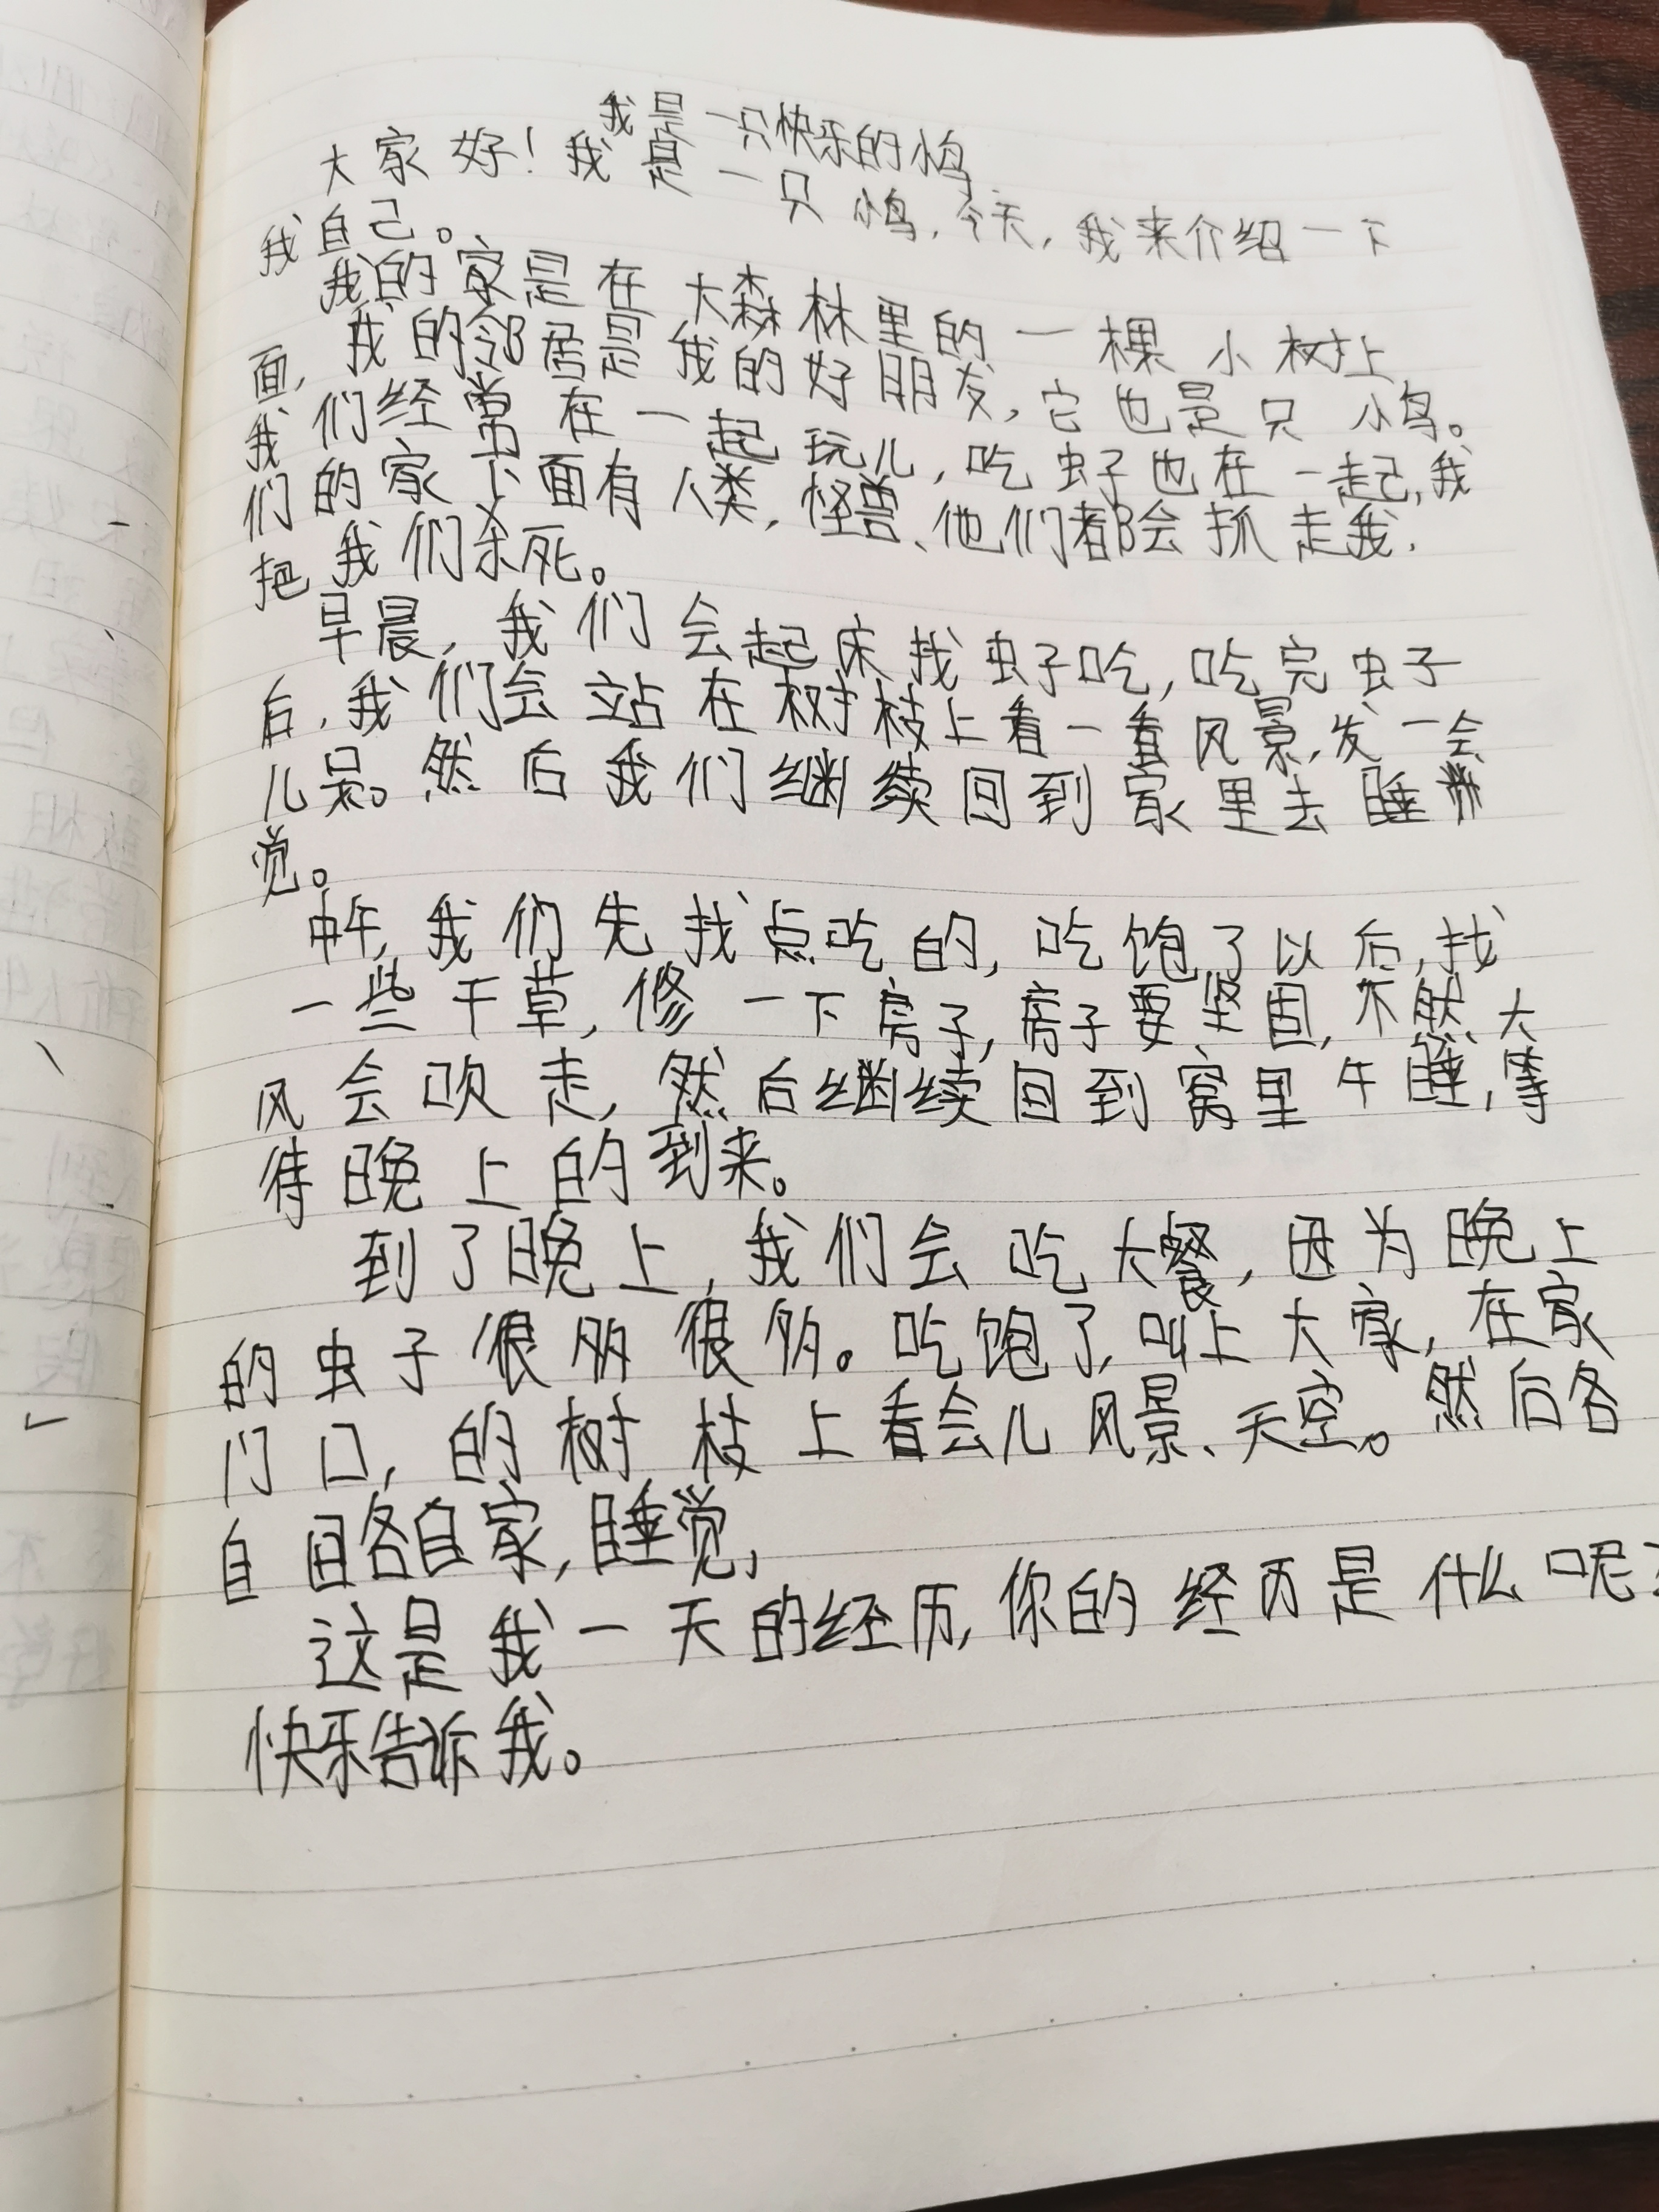 我是一只快乐的小鸟
大家好！我是一只小鸟，今天，我来介绍一下
我自己。
我的家是在大森林里的一棵小树上
面，我的邻居是我的好朋友，它也是只小鸟。
我们经常在一起玩儿，吃虫子也在一起，我
们的家下面有人类，怪兽、他们都会抓走我，
把我们杀死。
早晨，我们会起床找虫子吃，吃完虫子
后，我们会站在树枝上看一看风景，发一会
儿呆。然后我们继续回到家里去睡
觉。
中午，我们先找点吃的，吃饱了以后，找
一些干草，修一下房子，房子要坚固，不然大
风会吹走，然后继续回到窝里午睡，等
待晚上的到来。
到了晚上，我们会吃大餐，因为晚上
的虫子很多很多。吃饱了，叫上大家，在家
门口，的树枝上看会儿风景、天空。然后各
自回各自家，睡觉，
这是我一天的经历，你的经历是什么呢？
快乐告诉我。